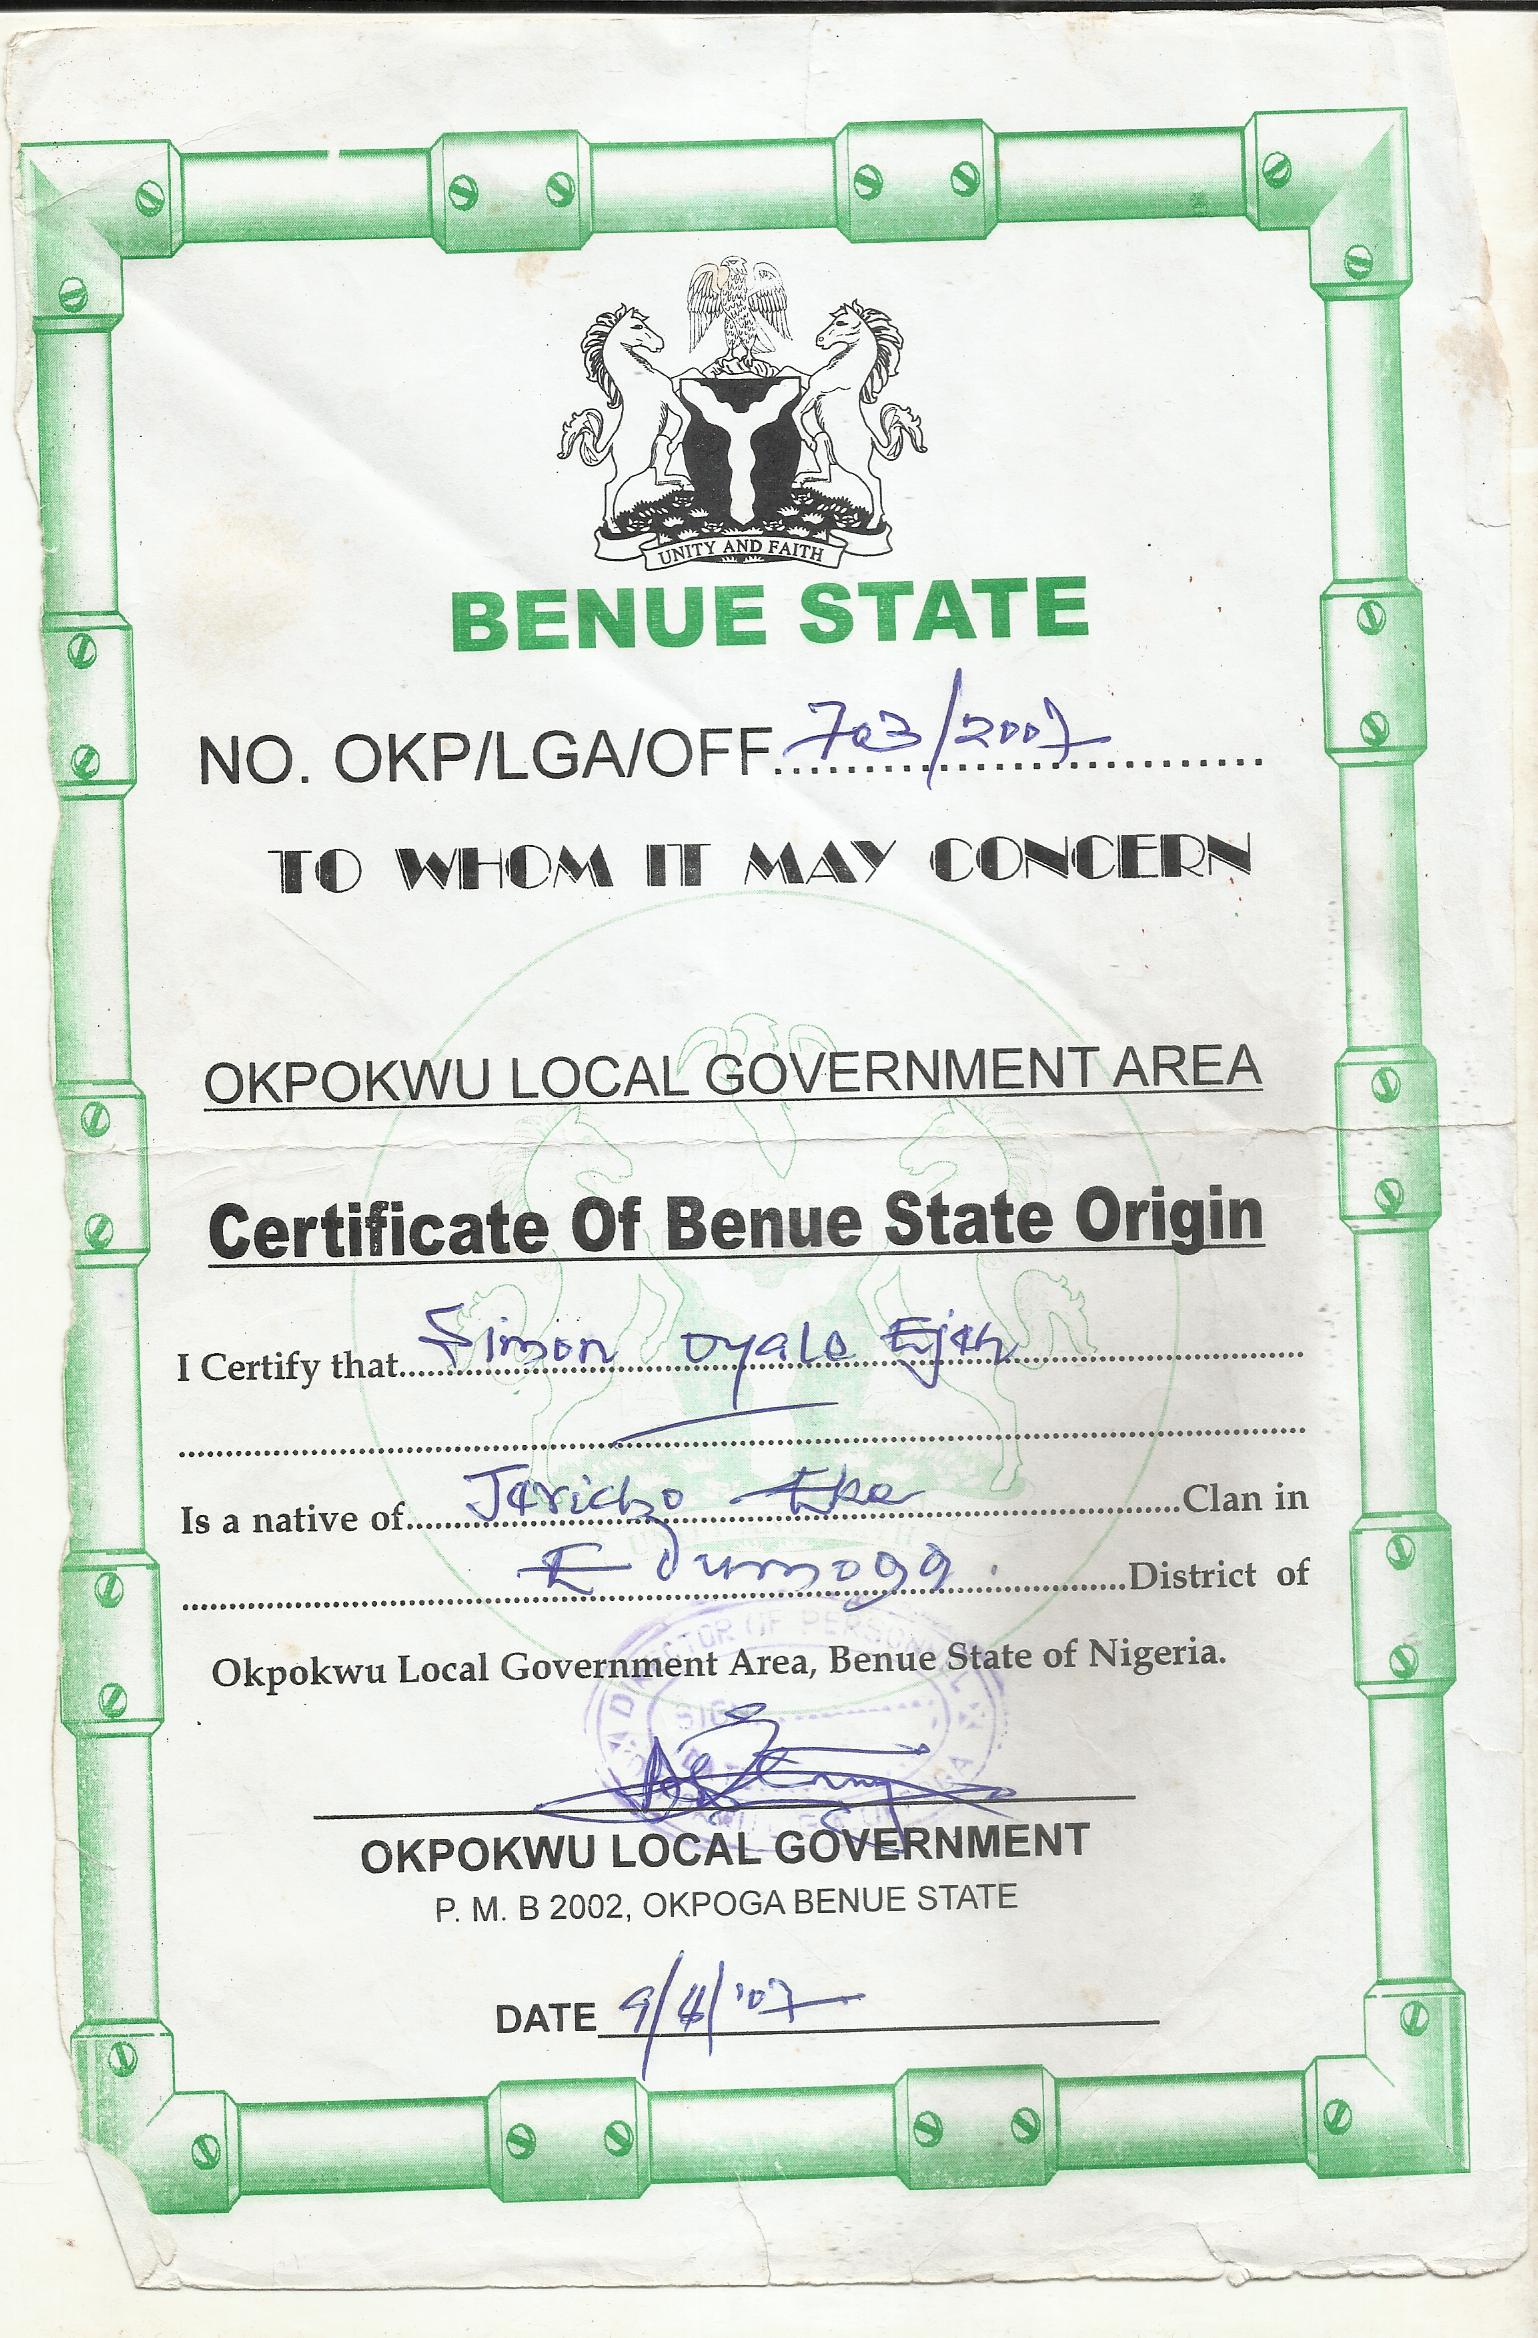 UNITY AND FAITH
BENUE STATE
NO. OKP/LGA/OFF 703/2007
TO WHOM IT MAY CONCERN
OKPOKWU LOCAL GOVERNMENT AREA
Certificate Of Benue State Origin
I Certify that Simon Oyale Ejeh
Is a native of Jericho Eke Clan in
Edumoga District of
Okpokwu Local Government Area, Benue State of Nigeria.
DIRECTOR OF PERSONNEL
SIGN
OKPOKWU LOCAL GOVERNMENT
P. M. B 2002, OKPOGA BENUE STATE
DATE 9/8/'07